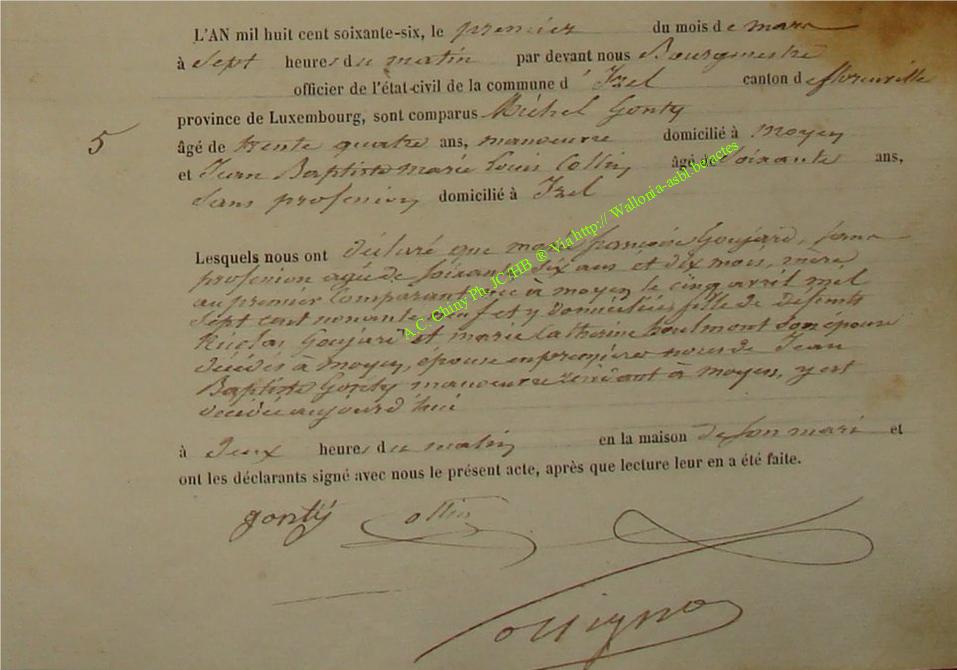 L'AN mil huit cent soixante-six, le premier du mois de mars
à Sept heures du matin par devant nous Bourgmestre
officier de l'état-civil de la commune d' Izel canton de florenville
province de Luxembourg, sont comparus Michel Gonty
5
âgé de trente quatre ans, manoeuvre domicilié à moyen
et Jean Baptiste marie Louis Collin âgé de Soixante ans,
Sans profession domicilié à Izel
Lesquels nous ont déclaré que marie françoise Goujard, sans
profession agée de soixante six ans et dix mois, mère
au premier Comparant née à moyen le cinq avril mil
Sept cent nonante neuf et y domiciliée fille de défunts
Nicolas Goujard et marie Catherine houlmont son épouse
décédés à moyen, épouse en premières noces de Jean
Baptiste Gonty manoeuvre résidant à moyen, y est
décédée aujourd'hui
à deux heures du matin en la maison de son mari et
ont les déclarants signé avec nous le présent acte, après que lecture leur en a été faite.
gonty Collin
A.C. Chiny Ph. JC /HB ® Via http:// Wallonia-asbl.be/actes